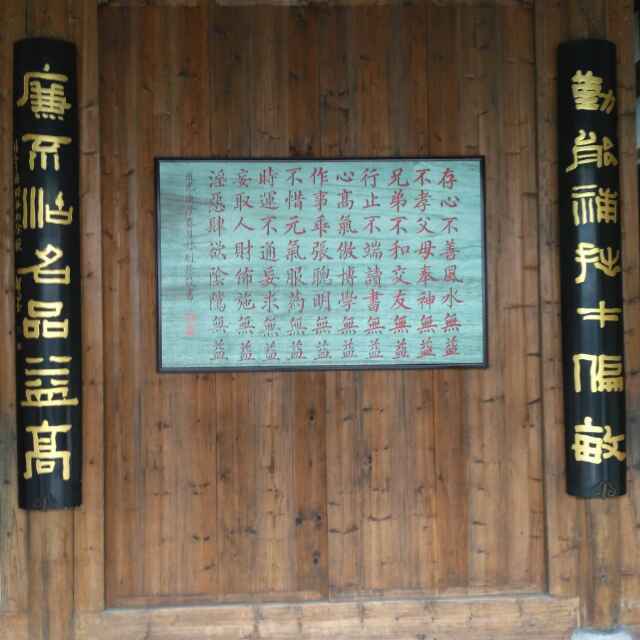 勤能補拙才偏敏
存心不善風水無益
不孝父母奉神無益
兄弟不和交友無益
行止不端讀書無益
心高氣傲博學無益
作事乖張聰明無益
不惜元氣服藥無益
時運不通妄求無益
妄取人財佈施無益
淫惡肆欲陰騭無益
廉不沾名品益高